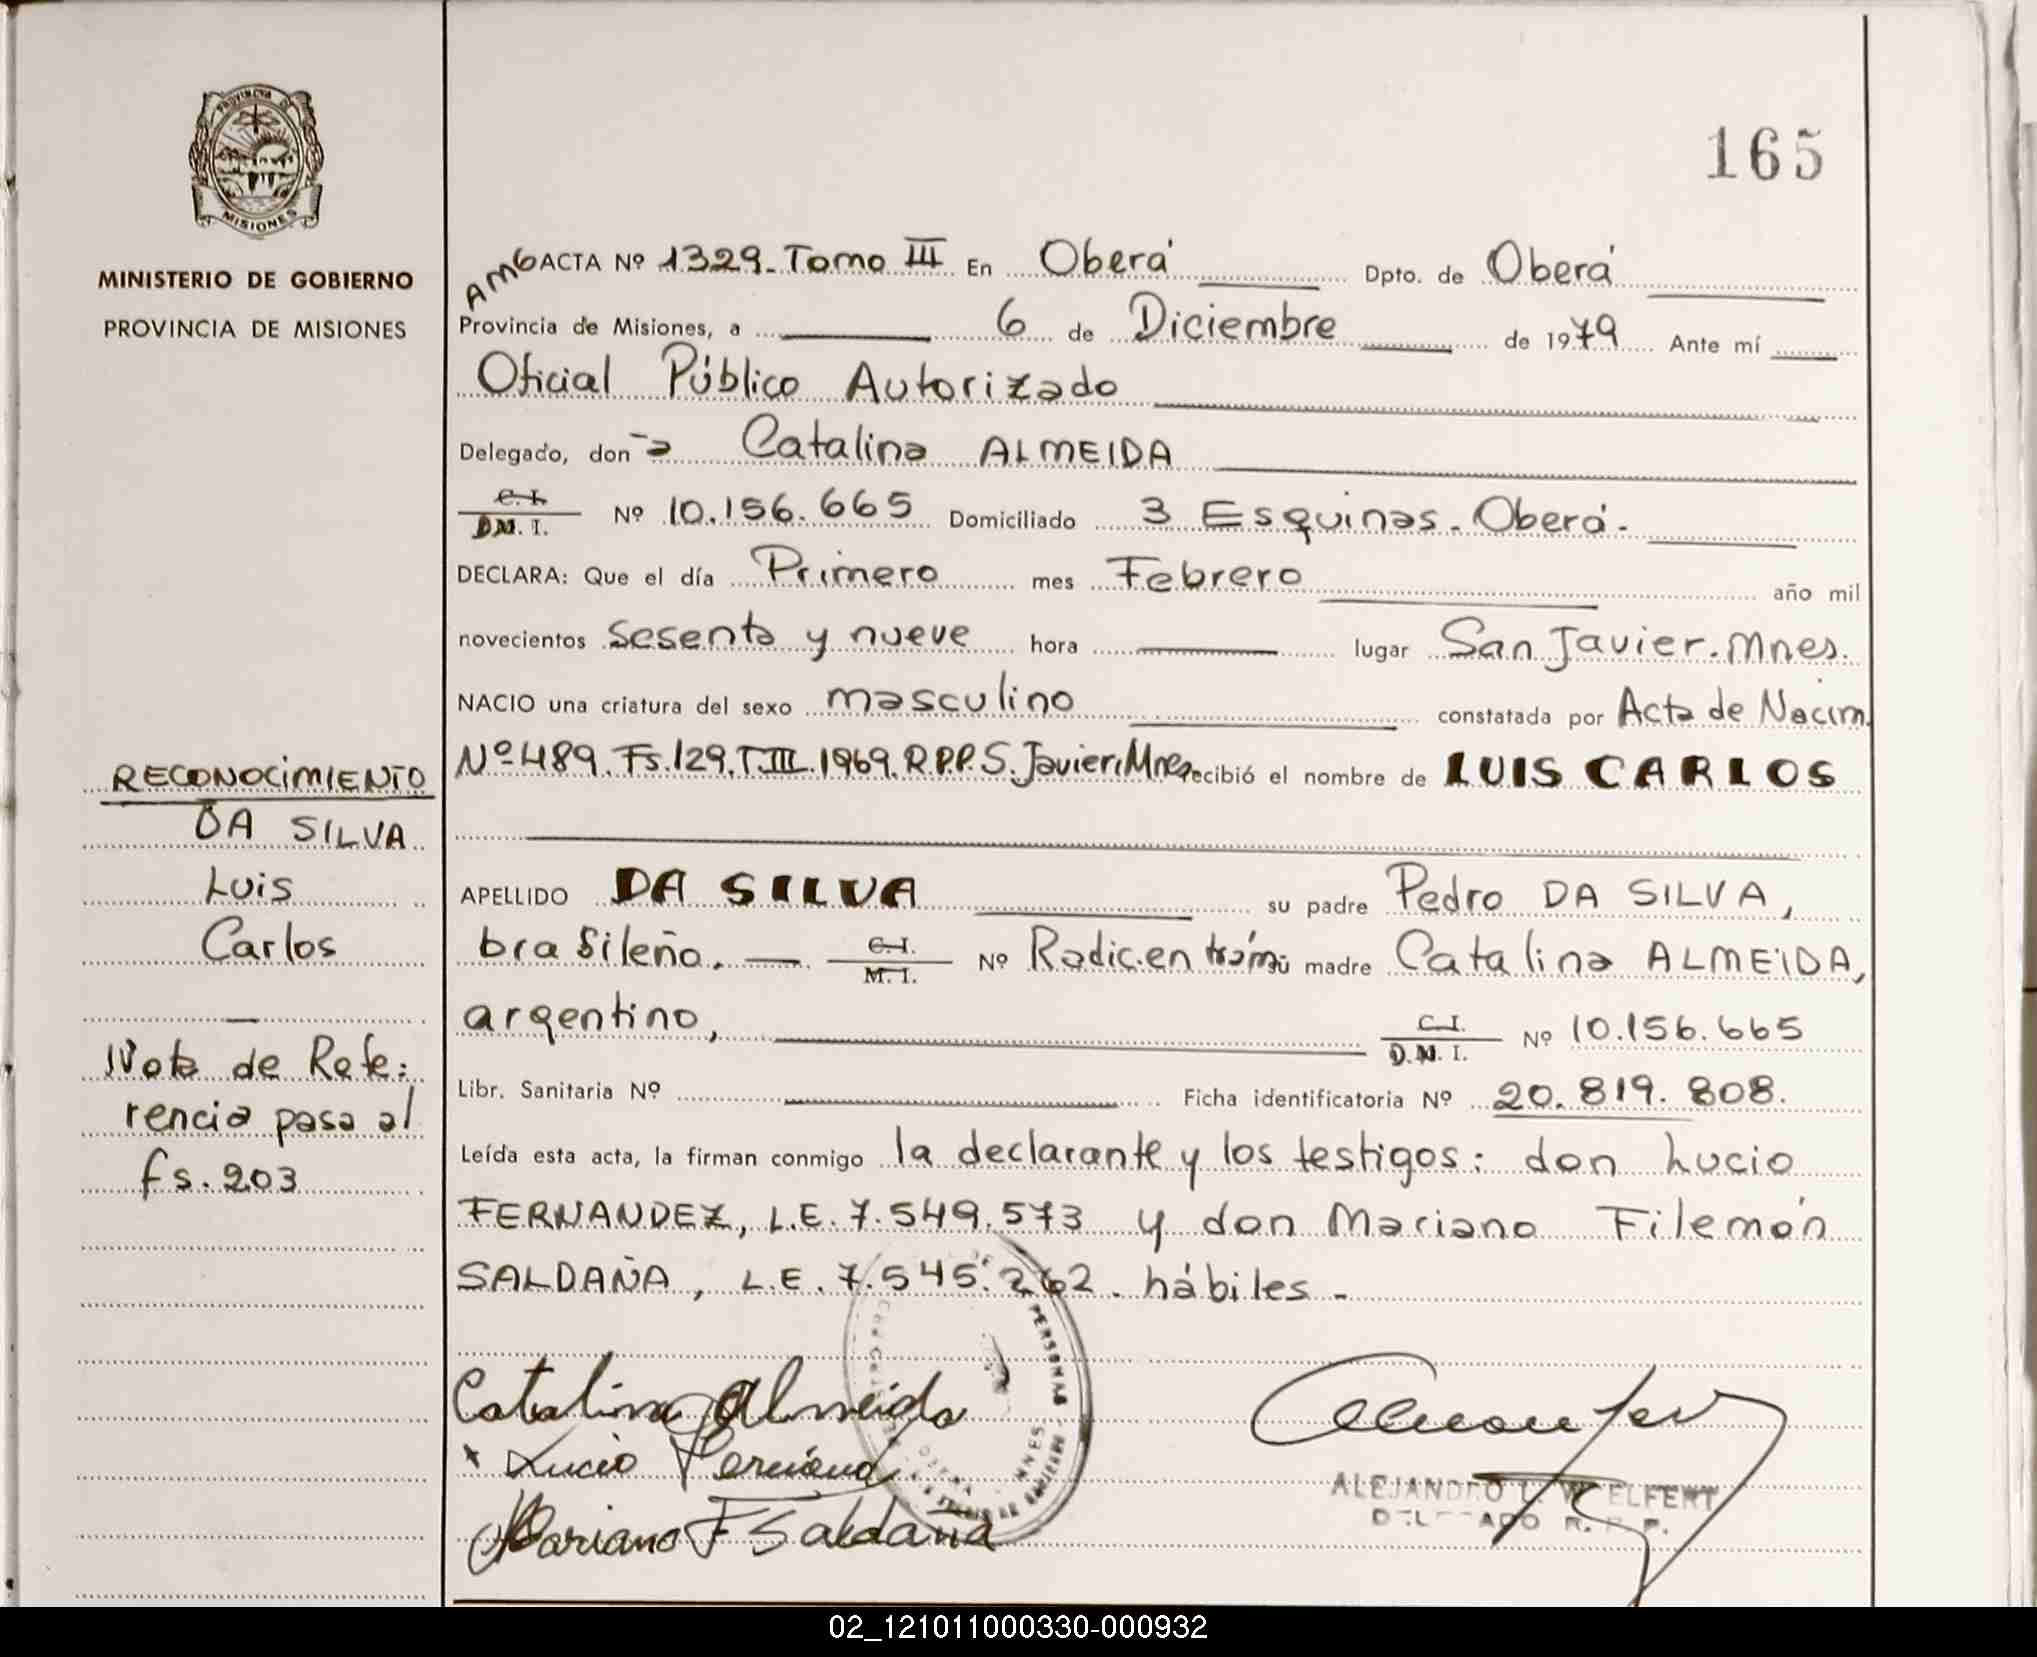 PROVINCIA DE
MISIONES
MINISTERIO DE GOBIERNO
PROVINCIA DE MISIONES
165
AMG ACTA Nº 1329-Tomo III En Oberá Dpto. de Oberá
Provincia de Misiones, a 6 de Diciembre de 1979 Ante mí
Oficial Público Autorizado
Delegado, don -a Catalina ALMEIDA
C. I.
D.N. I. Nº 10.156.665 Domiciliado 3 Esquinas - Oberá -
DECLARA: Que el día Primero mes Febrero año mil
novecientos Sesenta y nueve hora lugar San Javier. Mnes.
NACIO una criatura del sexo masculino constatada por Acta de Nacim.
Nº 489. Fs. 129. T. III. 1969. R.P.P. S. Javier, Mnes recibió el nombre de LUIS CARLOS
APELLIDO DA SILVA su padre Pedro DA SILVA,
brasileña. C. I.
M. I. Nº Radic. en trám su madre Catalina ALMEIDA,
argentino, C. I.
D.N. I. Nº 10.156.665
Libr. Sanitaria Nº Ficha identificatoria Nº 20.819.808.
Leída esta acta, la firman conmigo la declarante y los testigos: don Lucio
FERNANDEZ, L.E. 7.549.573 y don Mariano Filemón
SALDAÑA, L.E. 7.545.262. hábiles -
RECONOCIMIENTO
DA SILVA
Luis
Carlos
Nota de Refe:
rencia pasa al
fs. 203
Catalina Almeida
Lucio
Mariano F Saldaña
PERSONAS
MNES
ALEJANDRO L. WELFERT
DELEGADO R. P. P.
02_121011000330-000932